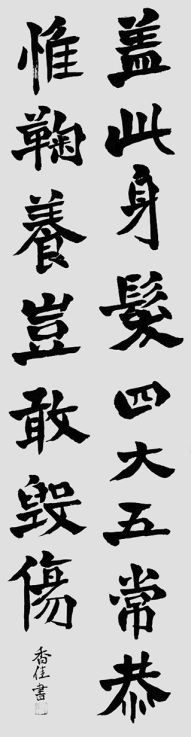 盖此身髮四大五常恭
惟鞠養豈敢毀傷
香佳書